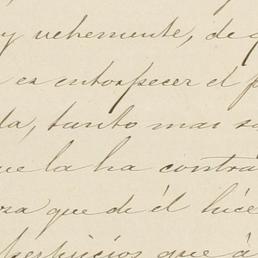 y vehemente, de
es entorpecer el
da, tanto mas
que la ha contra
osa que de él hice
perjuicios que á